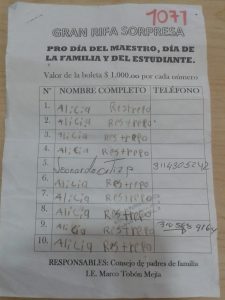 1077
GRAN RIFA SORPRESA
PRO DÍA DEL MAESTRO, DÍA DE
LA FAMILIA Y DEL ESTUDIANTE.
Valor de la boleta $ 1.000.oo por cada número
N° NOMBRE COMPLETO TELÉFONO
1. Alicia Restrepo
2. Alicia Restrepo
3. Alicia Restrepo
4. Alicia Restrepo
5. Leonardo
6. Alicia Restrepo
7. Alicia Restrepo
8. Alicia Restrepo
9. Alicia Restrepo
10. Alicia Restrepo
RESPONSABLES: Consejo de padres de familia
I.E. Marco Tobón Mejía